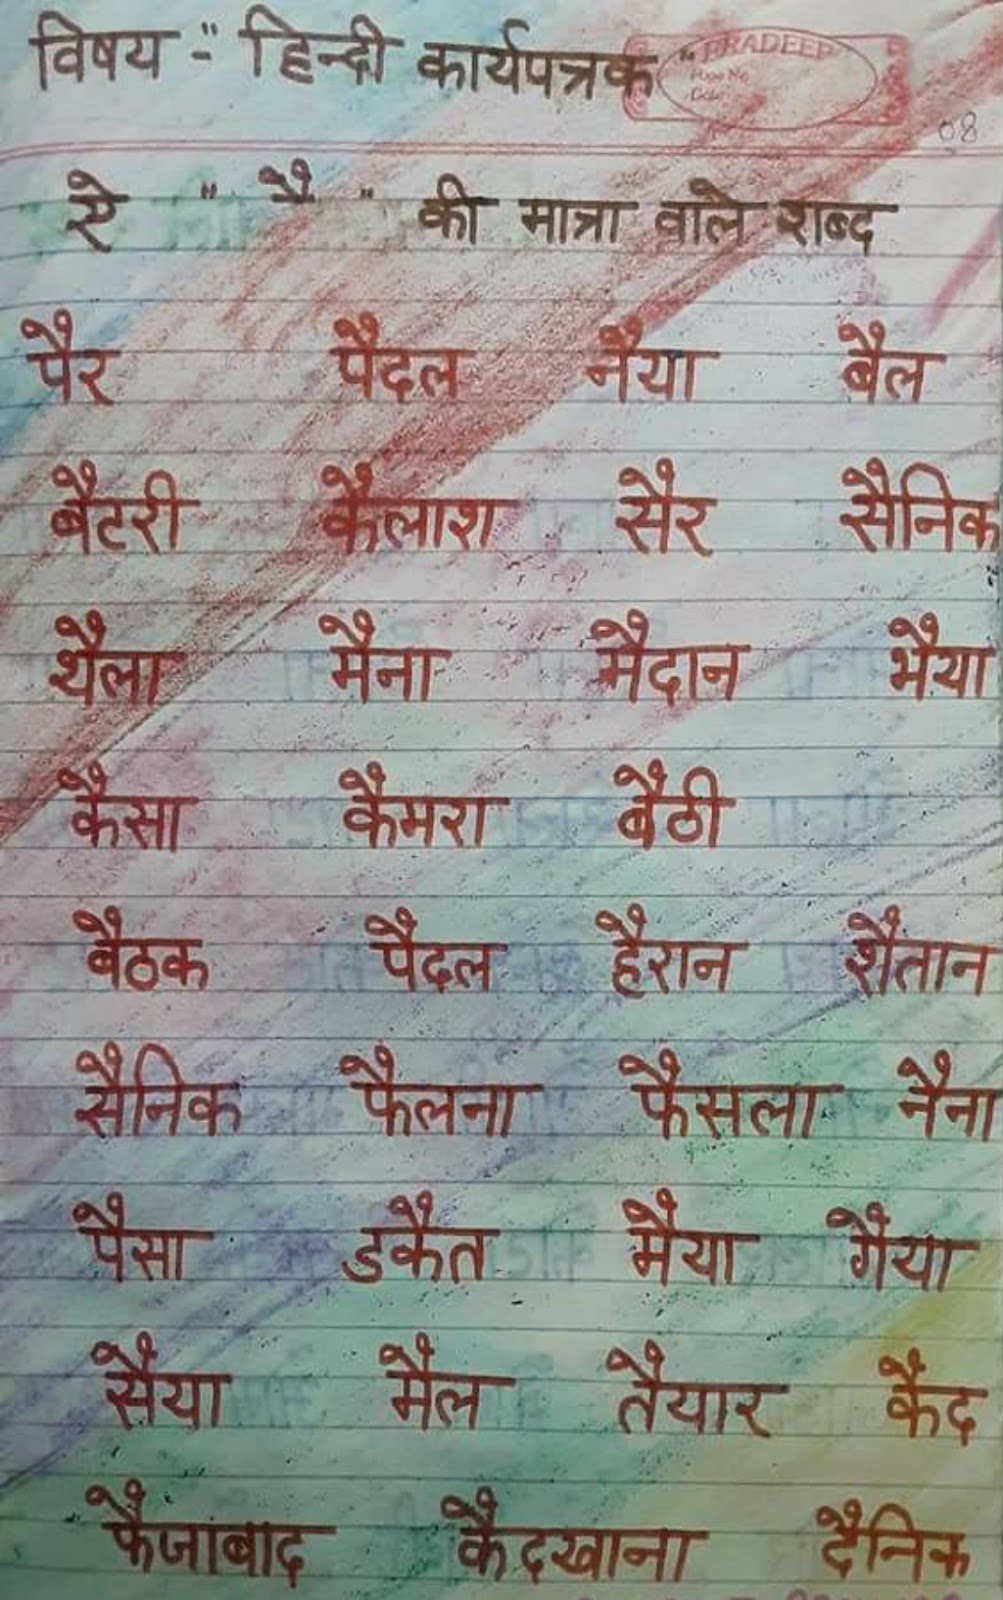 विषय -" हिन्दी कार्यपत्रक "
PRADEEP
Page No
Date
08
ऐ " ै " की मात्रा वाले शब्द
पैर पैदल नैया बैल
बैटरी कैलाश सैर सैनिक
थैला मैना मैदान भैया
कैसा कैमरा बैठी
बैठक पैदल हैरान शैतान
सैनिक फैलना फैसला नैना
पैसा डकैत मैया गैया
सैया मैल तैयार कैद
फैजाबाद कैदखाना दैनिक